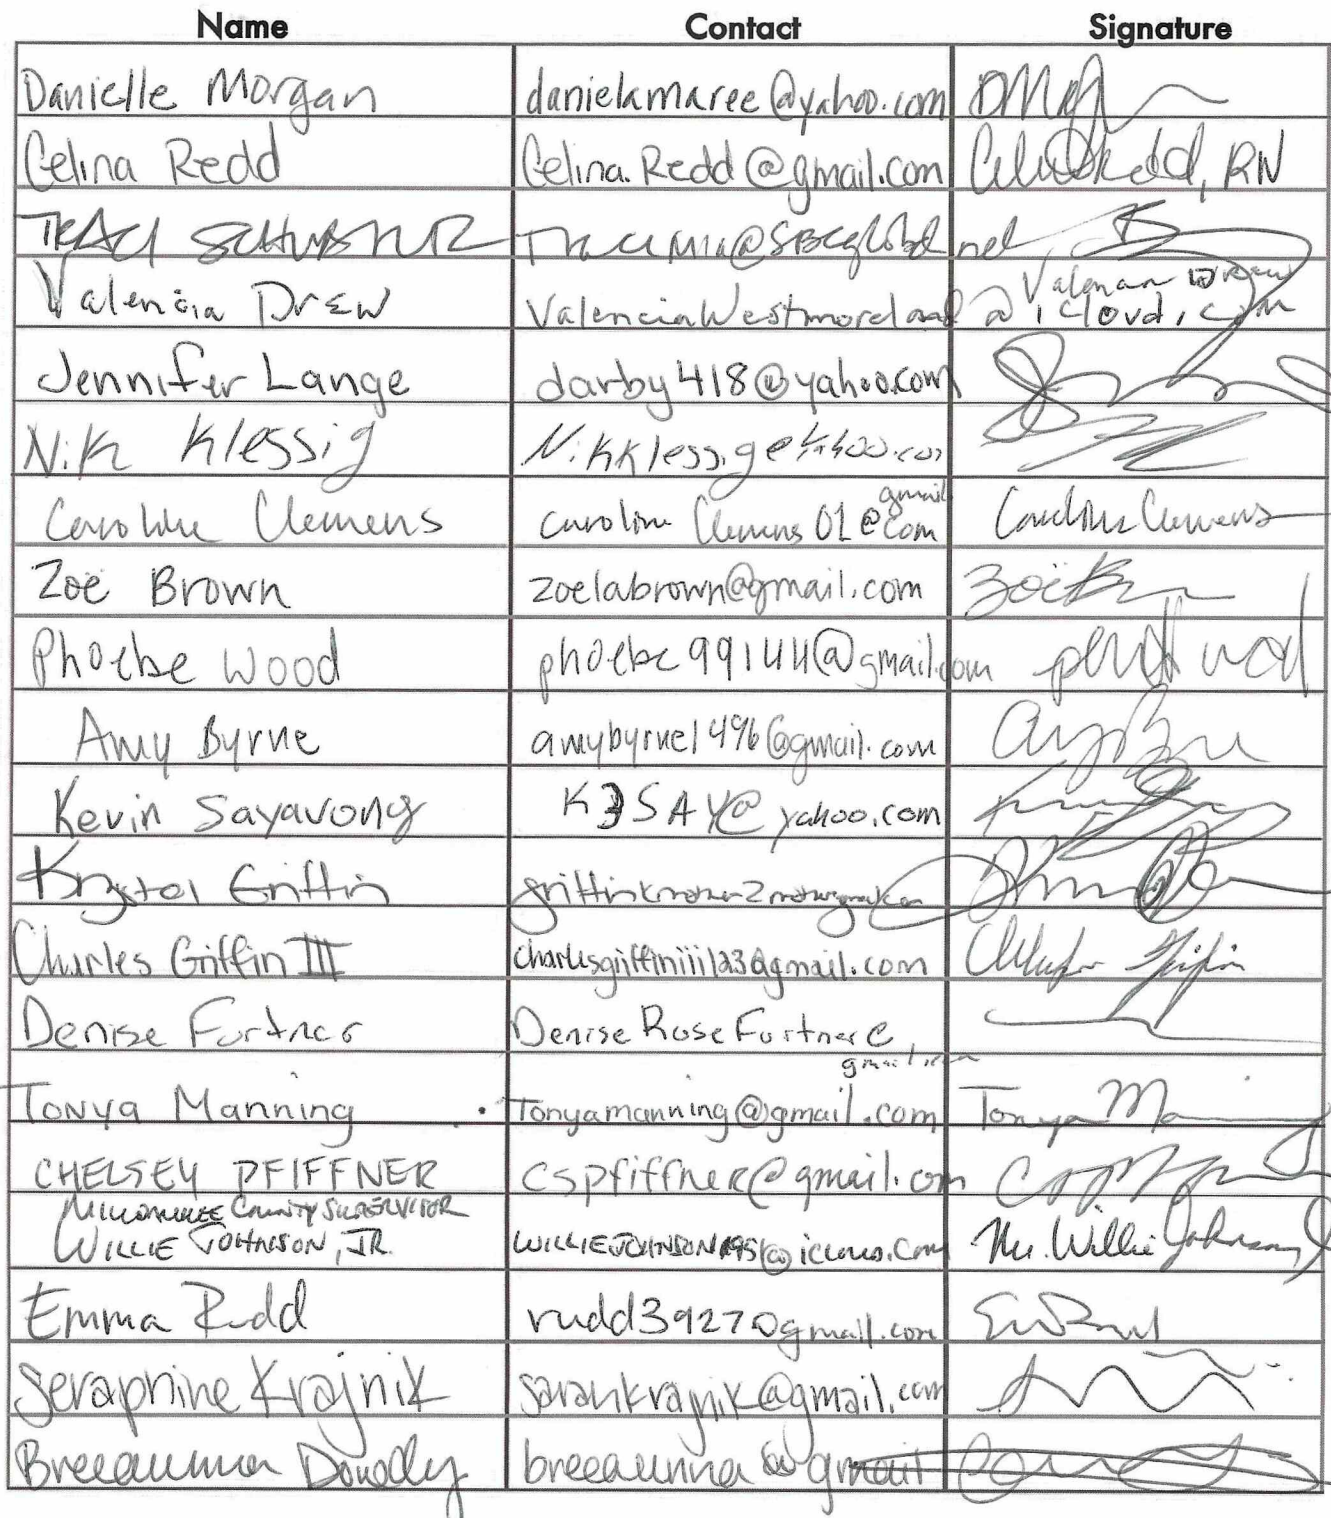 Name Contact Signature
Danielle Morgan danielamaree@yahoo.com
Celina Redd Celina.Redd@gmail.com RN
TRACI
Valencia Drew ValenciaWestmoreland@icloud.com
Jennifer Lange darby418@yahoo.com
Nik Klessig
Caroline Clemens carolineClemens01@gmail.com Caroline Clemens
Zoë Brown zoelabrown@gmail.com Zoë
Phoebe Wood phoebe99144@gmail.com
Amy Byrne amybyrne1496@gmail.com
Kevin Sayavong K3SAY@yahoo.com
Krystal Griffin
Charles Griffin III charlesgriffiniii123@gmail.com
Denise Fortner DeniseRoseFortner@
gmail.com
Tonya Manning Tonyamanning@gmail.com Tonya
CHELSEY PFIFFNER cspfiffner@gmail.com
MILWAUKEE COUNTY SUPERVISOR
WILLIE JOHNSON, JR. WILLIEJOHNSON1951@icloud.com Willie Johnson
Emma Rudd rudd3927@gmail.com
Seraphine Krajnik sarahkrajnik@gmail.com
Breeaunna breeaunna@gmail